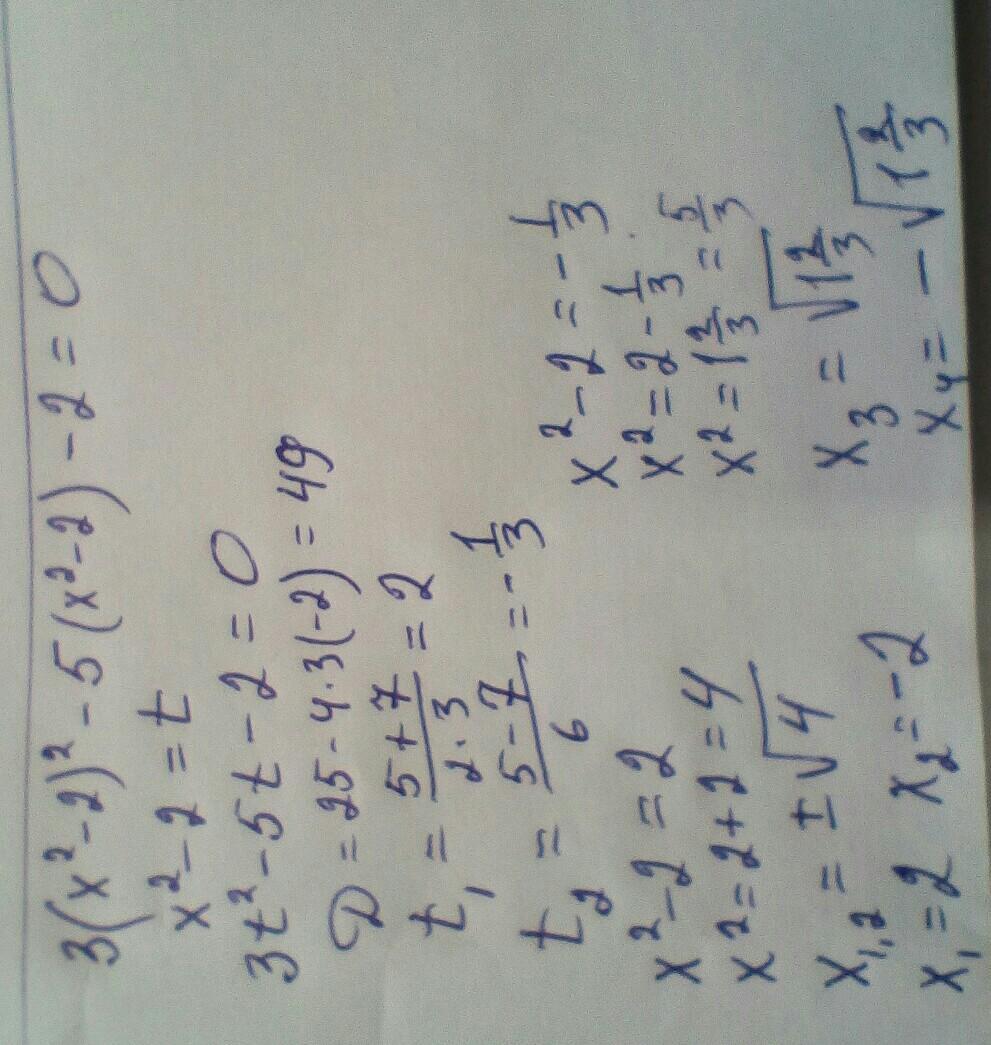 3(x²-2)²-5(x²-2)-2=0
x²-2=t
3t²-5t-2=0
D=25-4·3(-2)=49
t₁=(5+7)/(2·3)=2
t₂=(5-7)/6=-1/3
x²-2=2
x²=2+2=4
x₁,₂=±√4
x₁=2 x₂=-2
x²-2=-1/3
x²=2-1/3
x²=1 2/3=5/3
x₃=√(1 2/3)
x₄=-√(1 2/3)